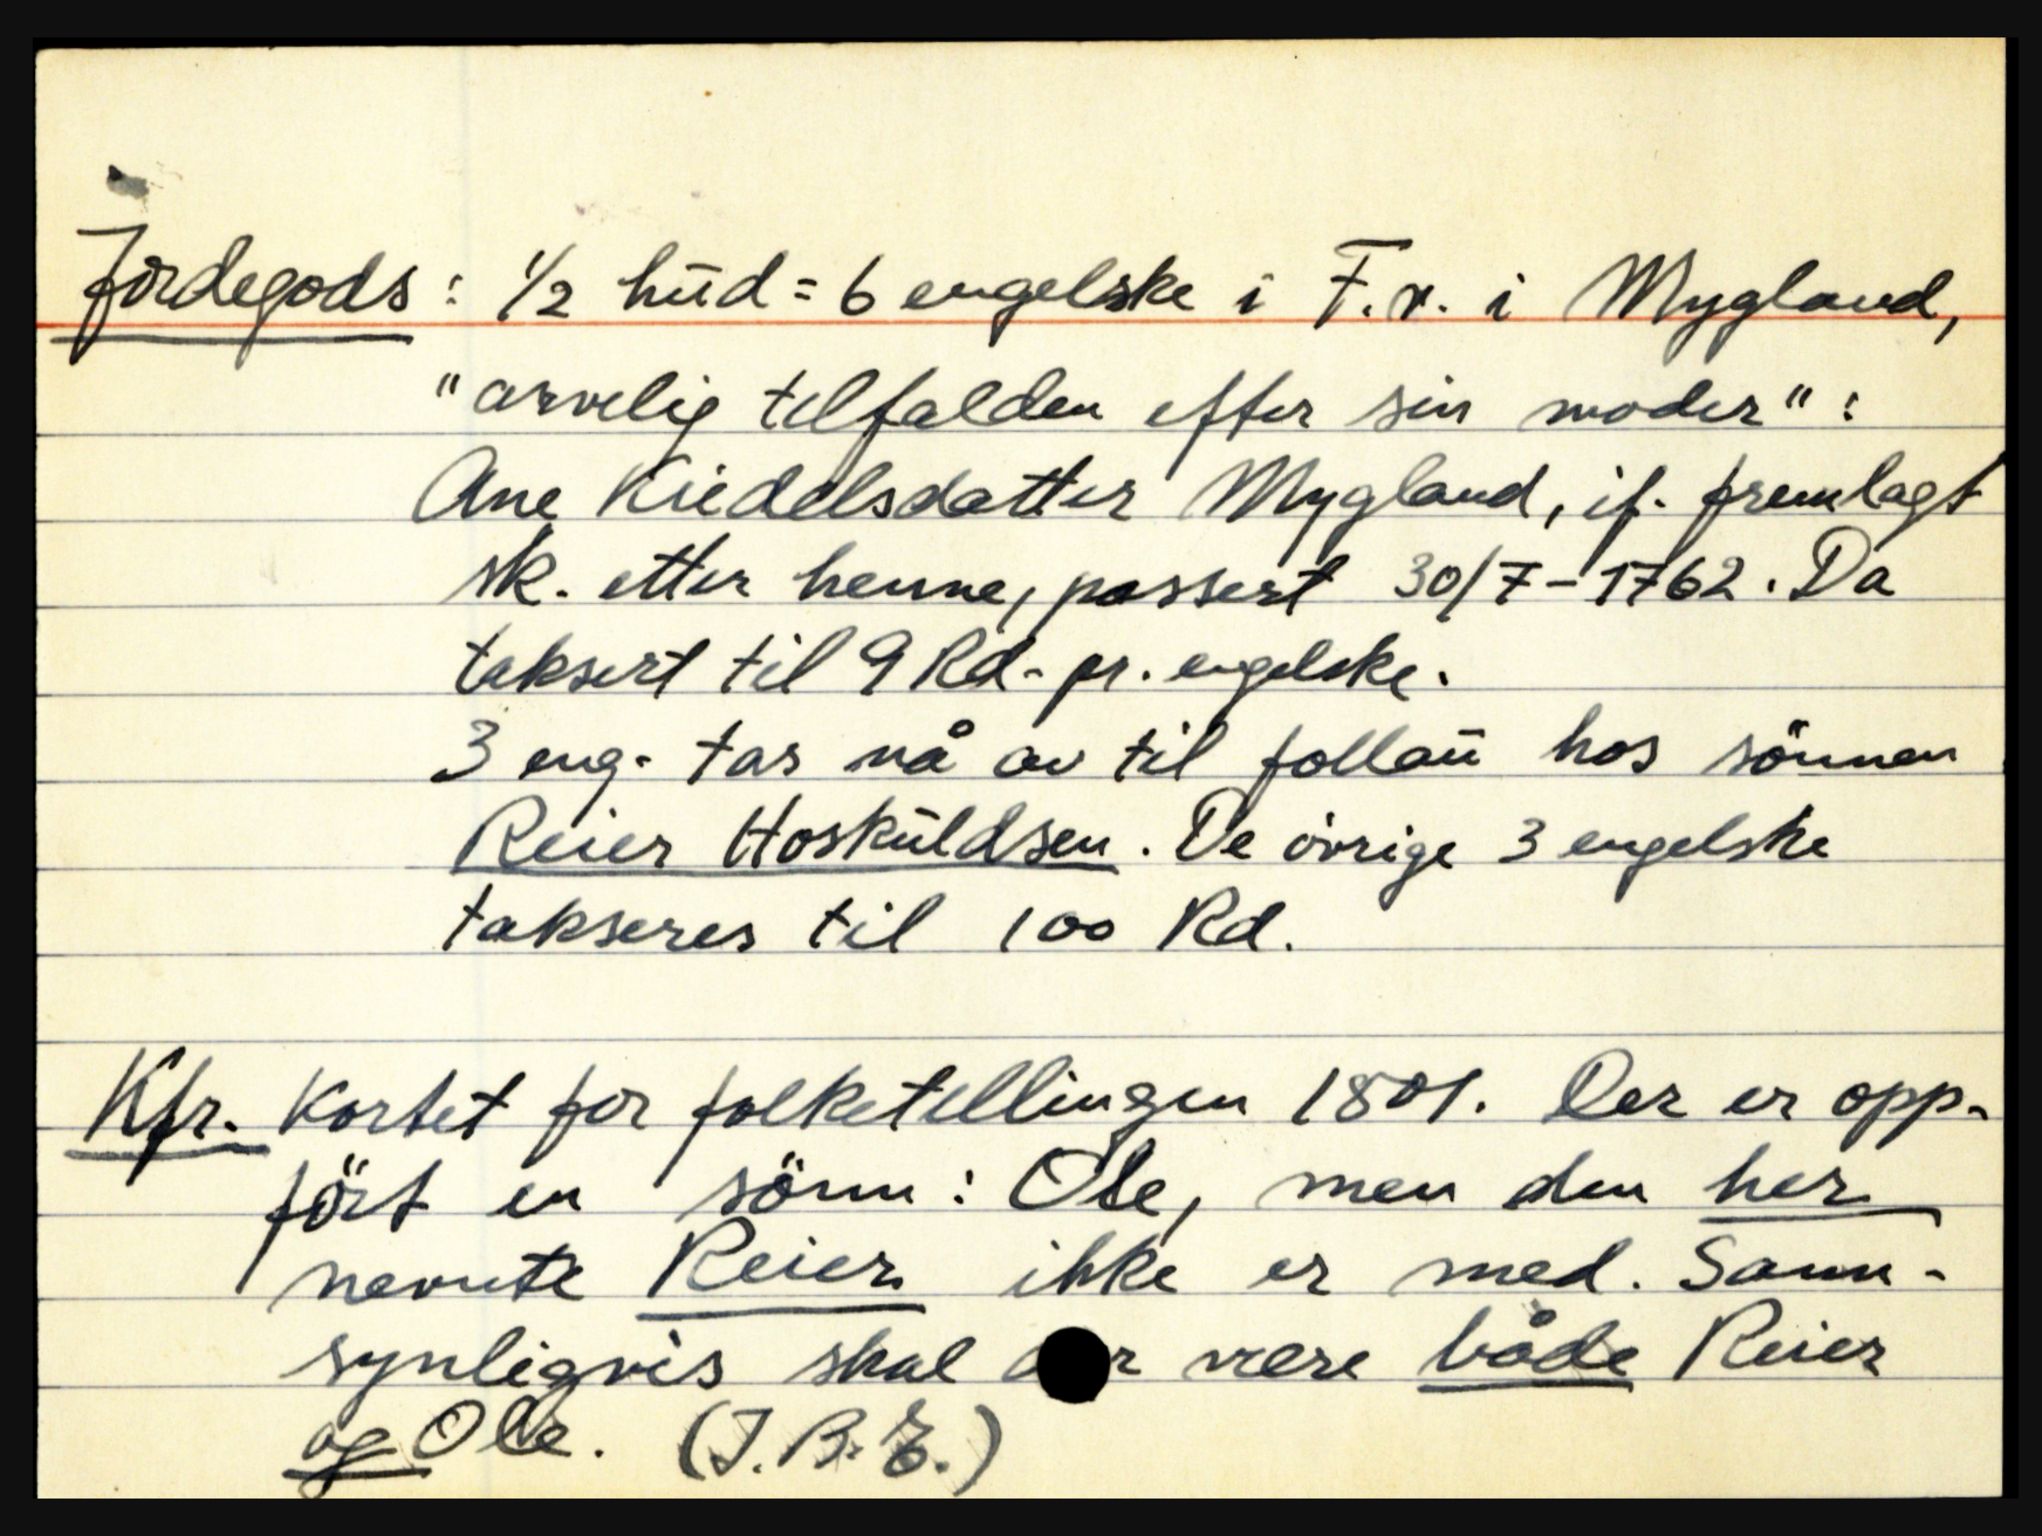 Jordegods: 1/2 hud = 6 engelske i F.v. i Mygland,
"arvelig tilfalden efter sin moder":
Ane Kiedelsdatter Mygland, if. fremlagt
sk. etter henne, passert 30/7-1762. Da
taksert til 9 Rd. pr. engelske.
3 eng. tas nå av til follau hos sönnen
Reier Hosküldsen. De övrige 3 engelske
takseres til 100 Rd.
Kfr. Kortet for folketellingen 1801. Der er opp-
fört en sönn: Ole, men den her
nevnte Reier ikke er med. Sann-
synligvis skal der være både Reier
og Ole. (J.B.E.)